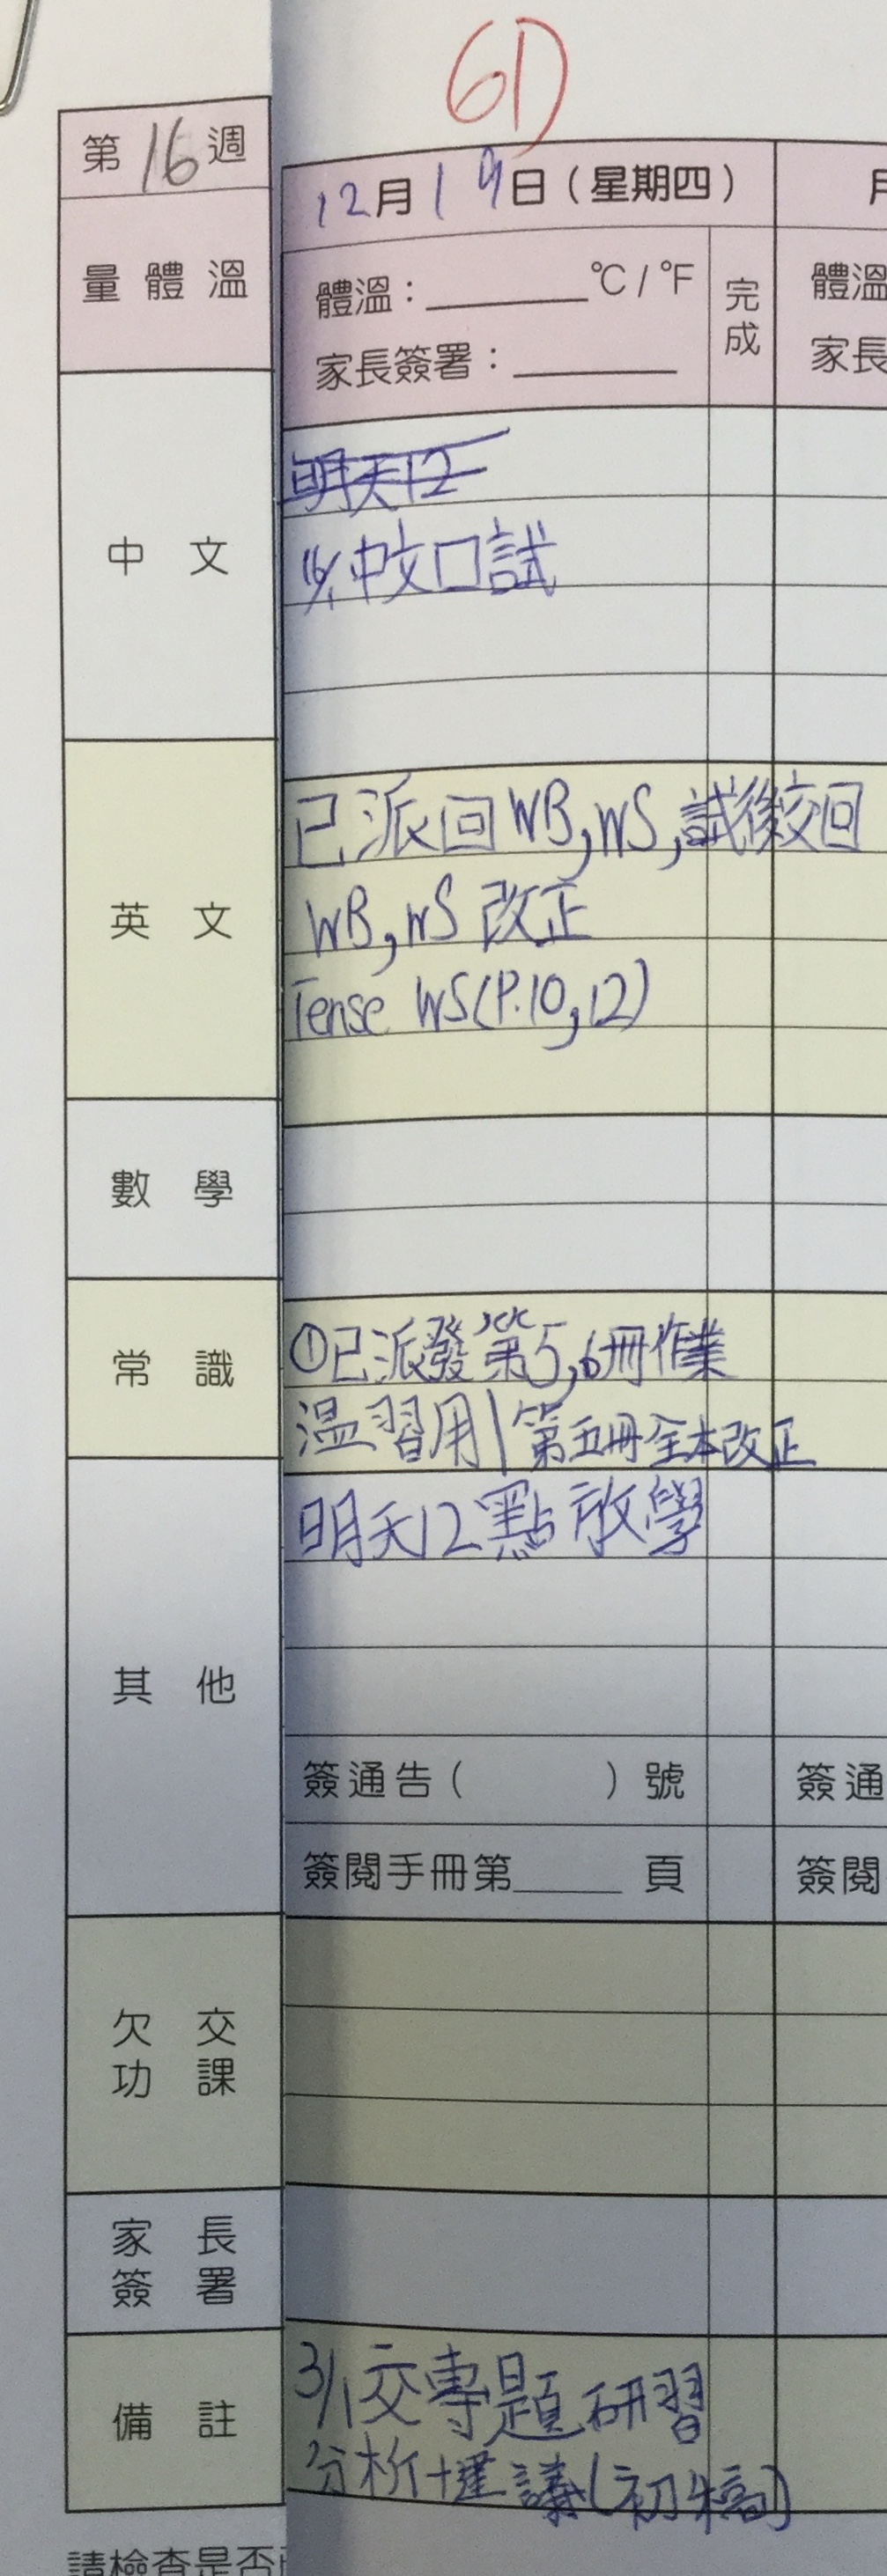 6D
第16週
12月19日(星期四)
月
量體溫
體溫：______°C/°F
完成
體溫
家長簽署：______
家長
中文
明天12
16/1中文口試
英文
已派回WB,WS,試後交回
WB,WS改正
Tense WS(P.10,12)
數學
常識
①已派發第5,6冊作業
温習用|第五冊全本改正
其他
明天12點放學
簽通告(　　　)號
簽通
簽閱手冊第____頁
簽閱
欠交
功課
家長
簽署
備註
3/1交專題研習
分析+建議(初稿)
請檢查是否